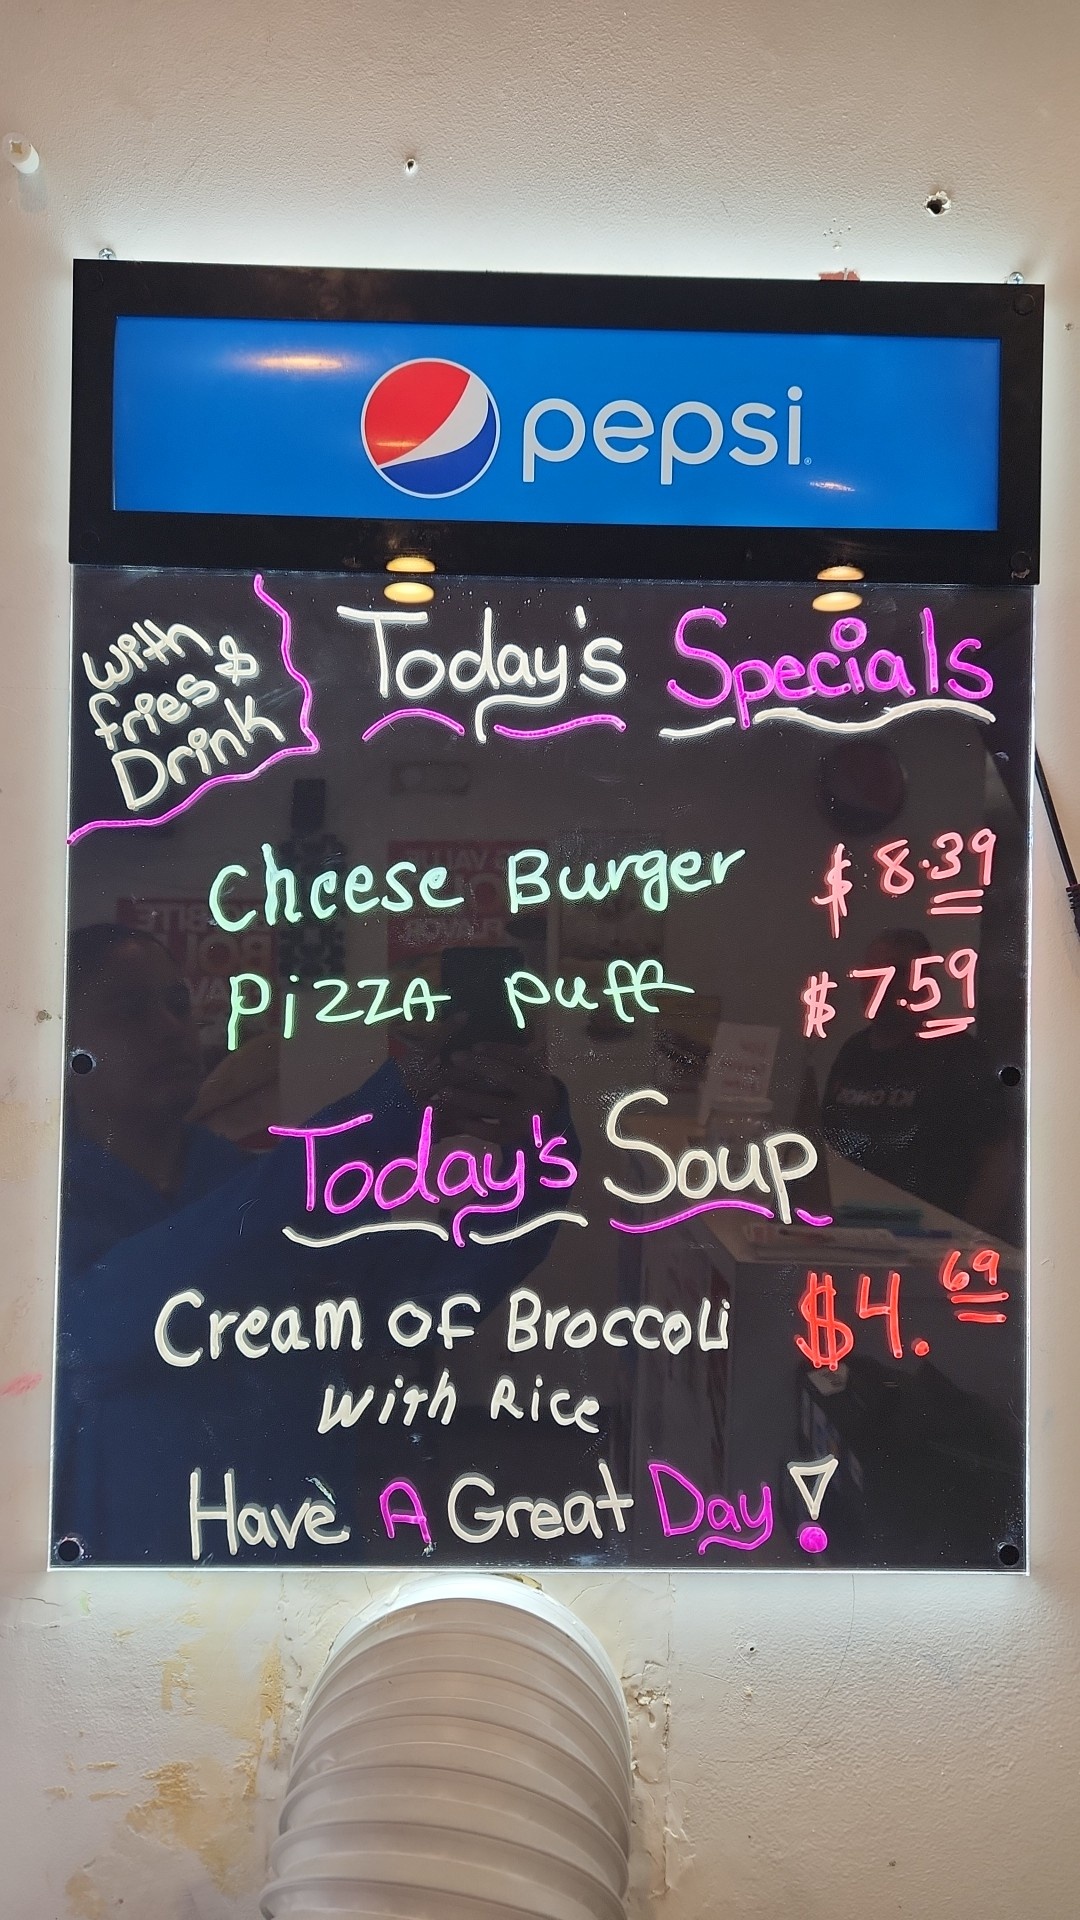 pepsi
with
fries &
Drink
Today's Specials
Cheese Burger $8.39
Pizza puff $7.59
Today's Soup
Cream of Broccoli $4.69
with Rice
Have A Great Day!